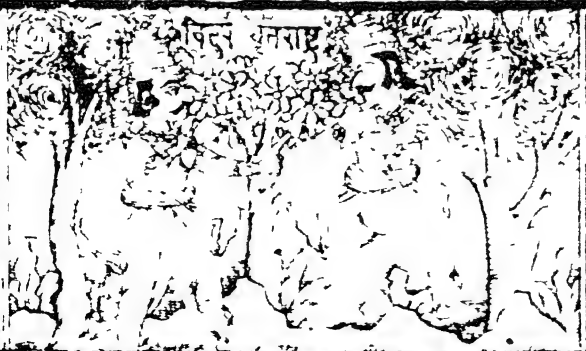 विदुर धृतराष्ट्र